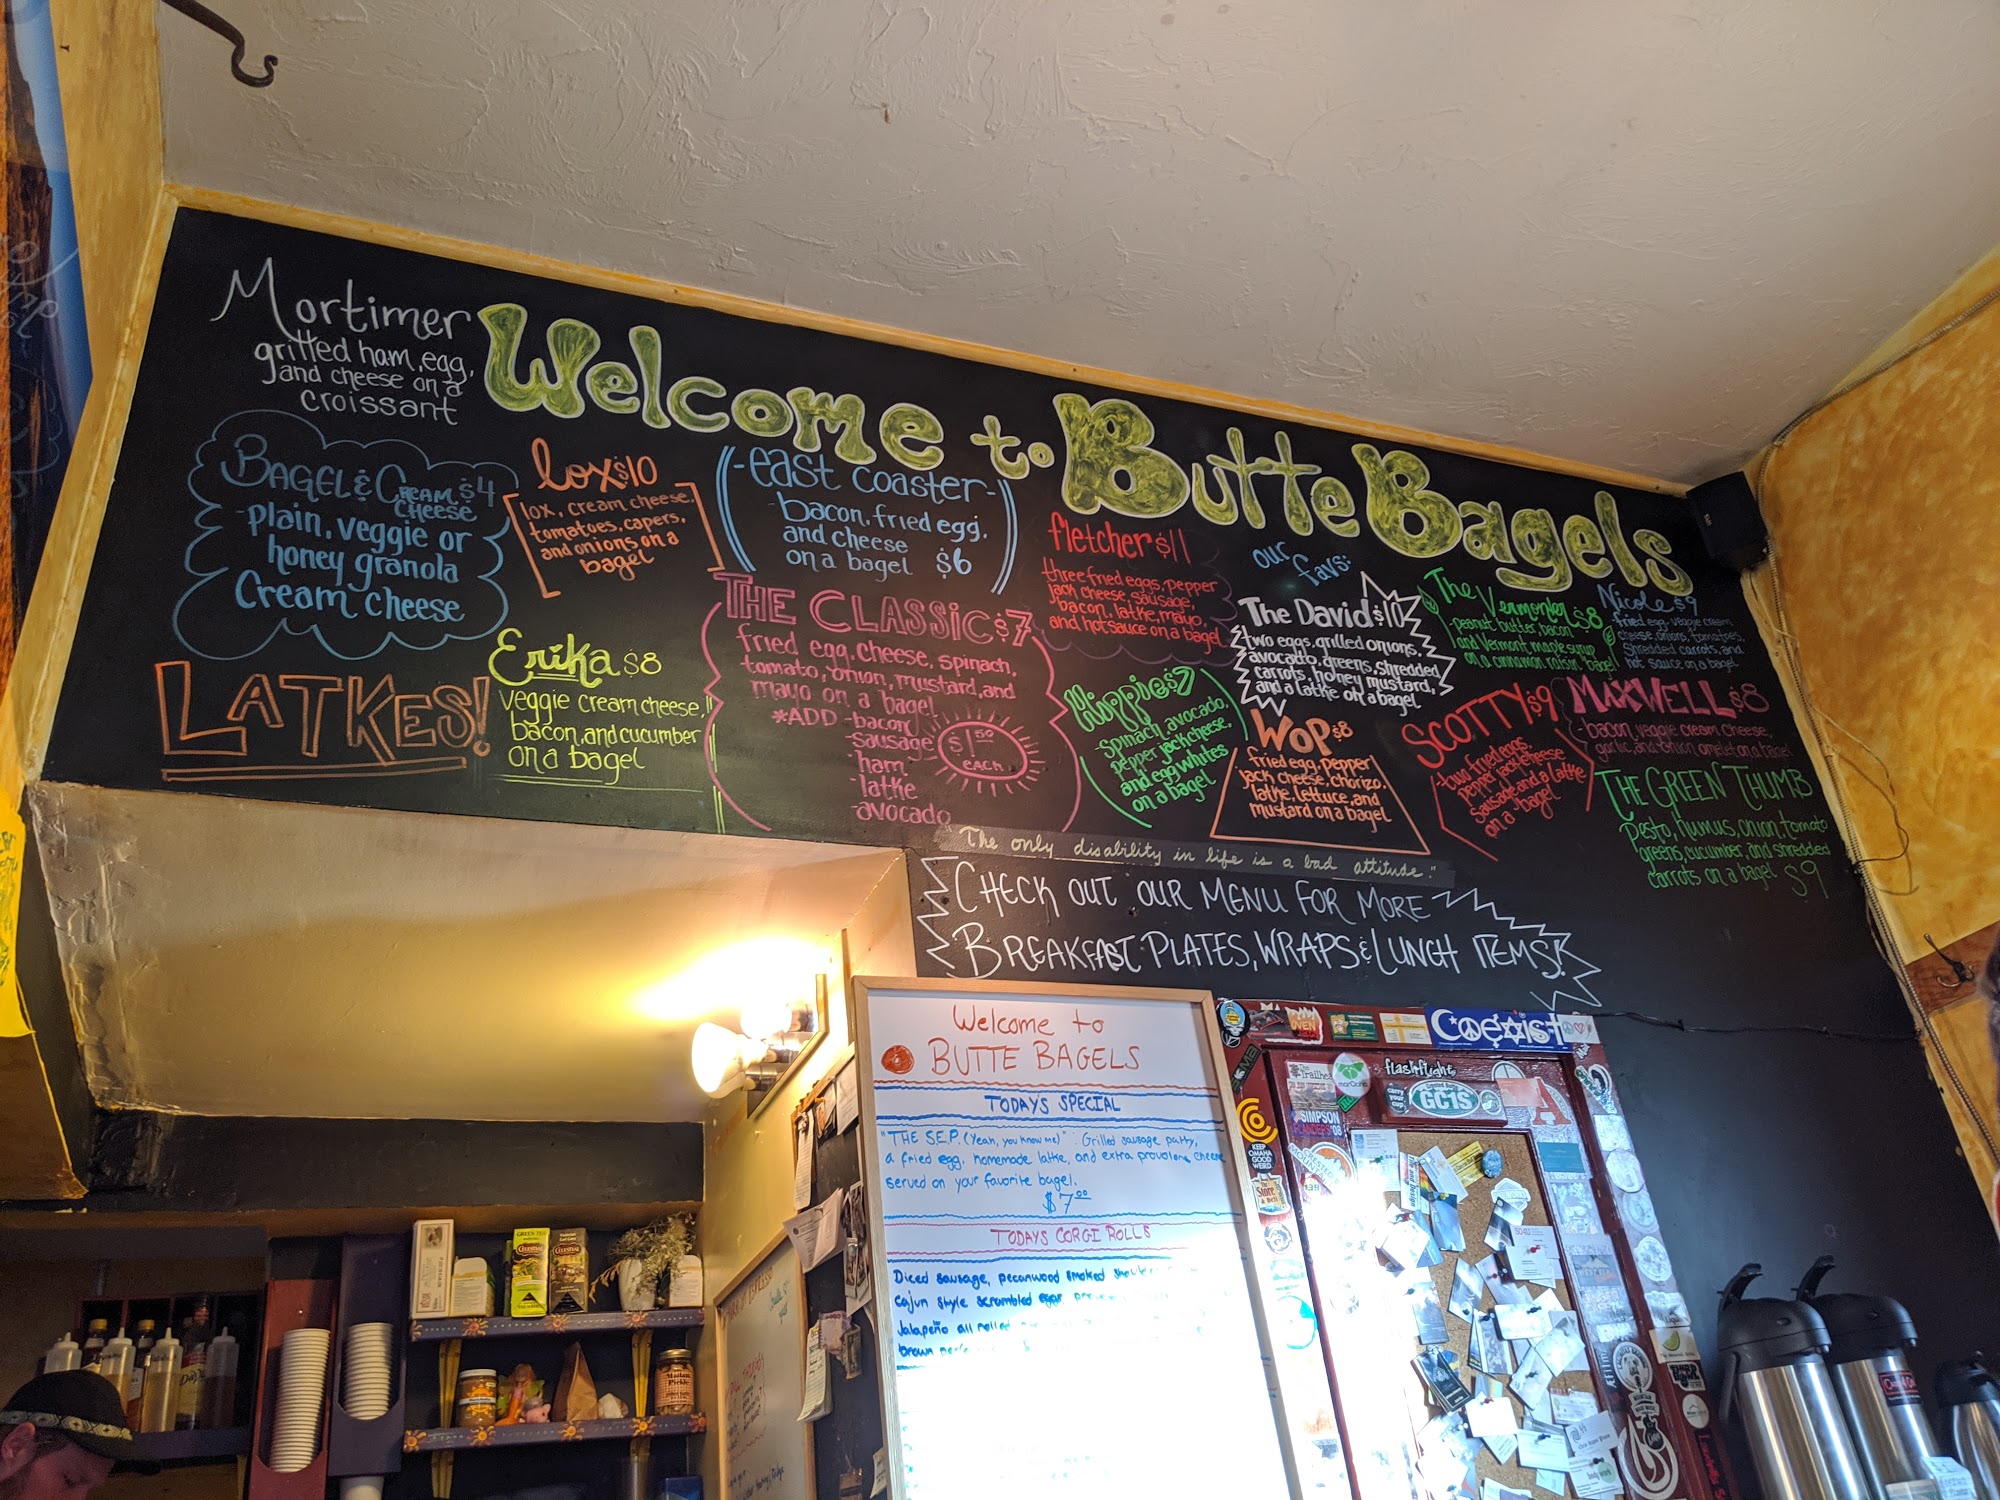 Mortimer
grilled ham, egg,
and cheese on a
croissant
Welcome to Butte Bagels
BAGEL & CREAM CHEESE $4
-plain, veggie or
honey granola
Cream cheese
lox $10
lox, cream cheese,
tomatoes, capers,
and onions on a
bagel
-east coaster-
-bacon, fried egg,
and cheese
on a bagel $6
LATKES!
Erika $8
veggie cream cheese,
bacon, and cucumber
on a bagel
THE CLASSIC $7
fried egg, cheese, spinach,
tomato, onion, mustard, and
mayo on a bagel
*ADD -bacon
-sausage
ham
-latke
-avocado
$1.50
EACH
fletcher $11
three fried eggs, pepper
jack cheese, sausage,
bacon, latke, mayo,
and hot sauce on a bagel
our
favs:
Hippie $7
-spinach, avocado,
pepper jack cheese,
and egg whites
on a bagel
The David $10
two eggs, grilled onions,
avocado, greens, shredded
carrots, honey mustard,
and a latke on a bagel
WOP $8
fried egg, pepper
jack cheese, chorizo,
latke, lettuce, and
mustard on a bagel
The Vermonter $8
-peanut butter, bacon
and Vermont maple syrup
on a cinnamon raisin bagel
Nicole $9
fried egg, veggie cream
cheese, onions, tomatoes,
shredded carrots, and
hot sauce on a bagel
SCOTTY $9
-two fried eggs,
pepper jack cheese
sausage and a latke
on a bagel
MAXWELL $8
-bacon, veggie cream cheese,
garlic, and onion omelet on a bagel
THE GREEN THUMB
pesto, humus, onion, tomato
greens, cucumber, and shredded
carrots on a bagel $9
"The only disability in life is a bad attitude."
CHECK OUT OUR MENU FOR MORE
BREAKFAST PLATES, WRAPS & LUNCH ITEMS!
Welcome to
BUTTE BAGELS
TODAYS SPECIAL
"THE S.E.P. (Yeah, you know me)": Grilled sausage patty,
a fried egg, homemade latke, and extra provolone cheese
served on your favorite bagel.
$7.00
TODAYS CORGI ROLLS
Diced sausage, pecanwood smoked
Cajun style scrambled eggs
Jalapeño all rolled
brown
COEXIST
flashflight
GC1S
A
SIMPSON
KEEP
OMAHA
GOOD
WEIRD
The
Store
OVEN
GREEN TEA
CELESTIAL
CELESTIAL